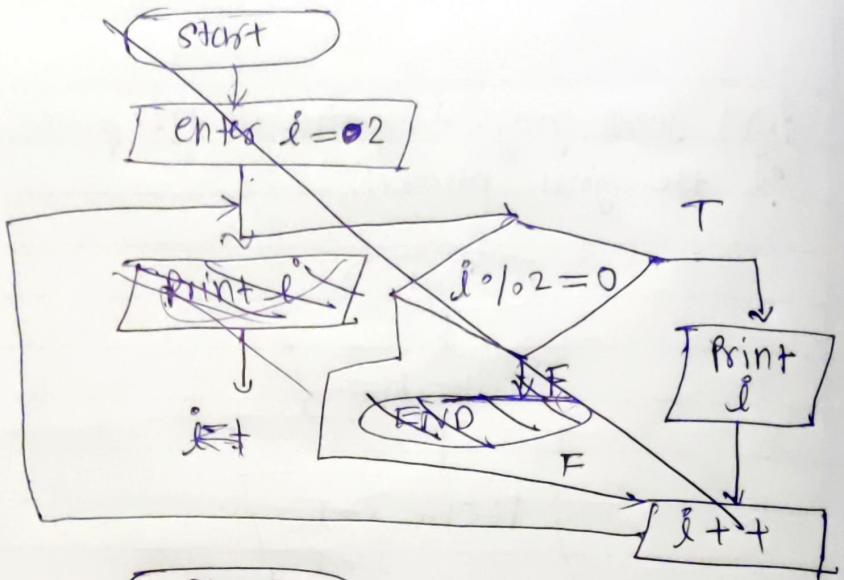 start
enter i = 2
T
print i
i % 2 = 0
print
i
F
END
F
i + +